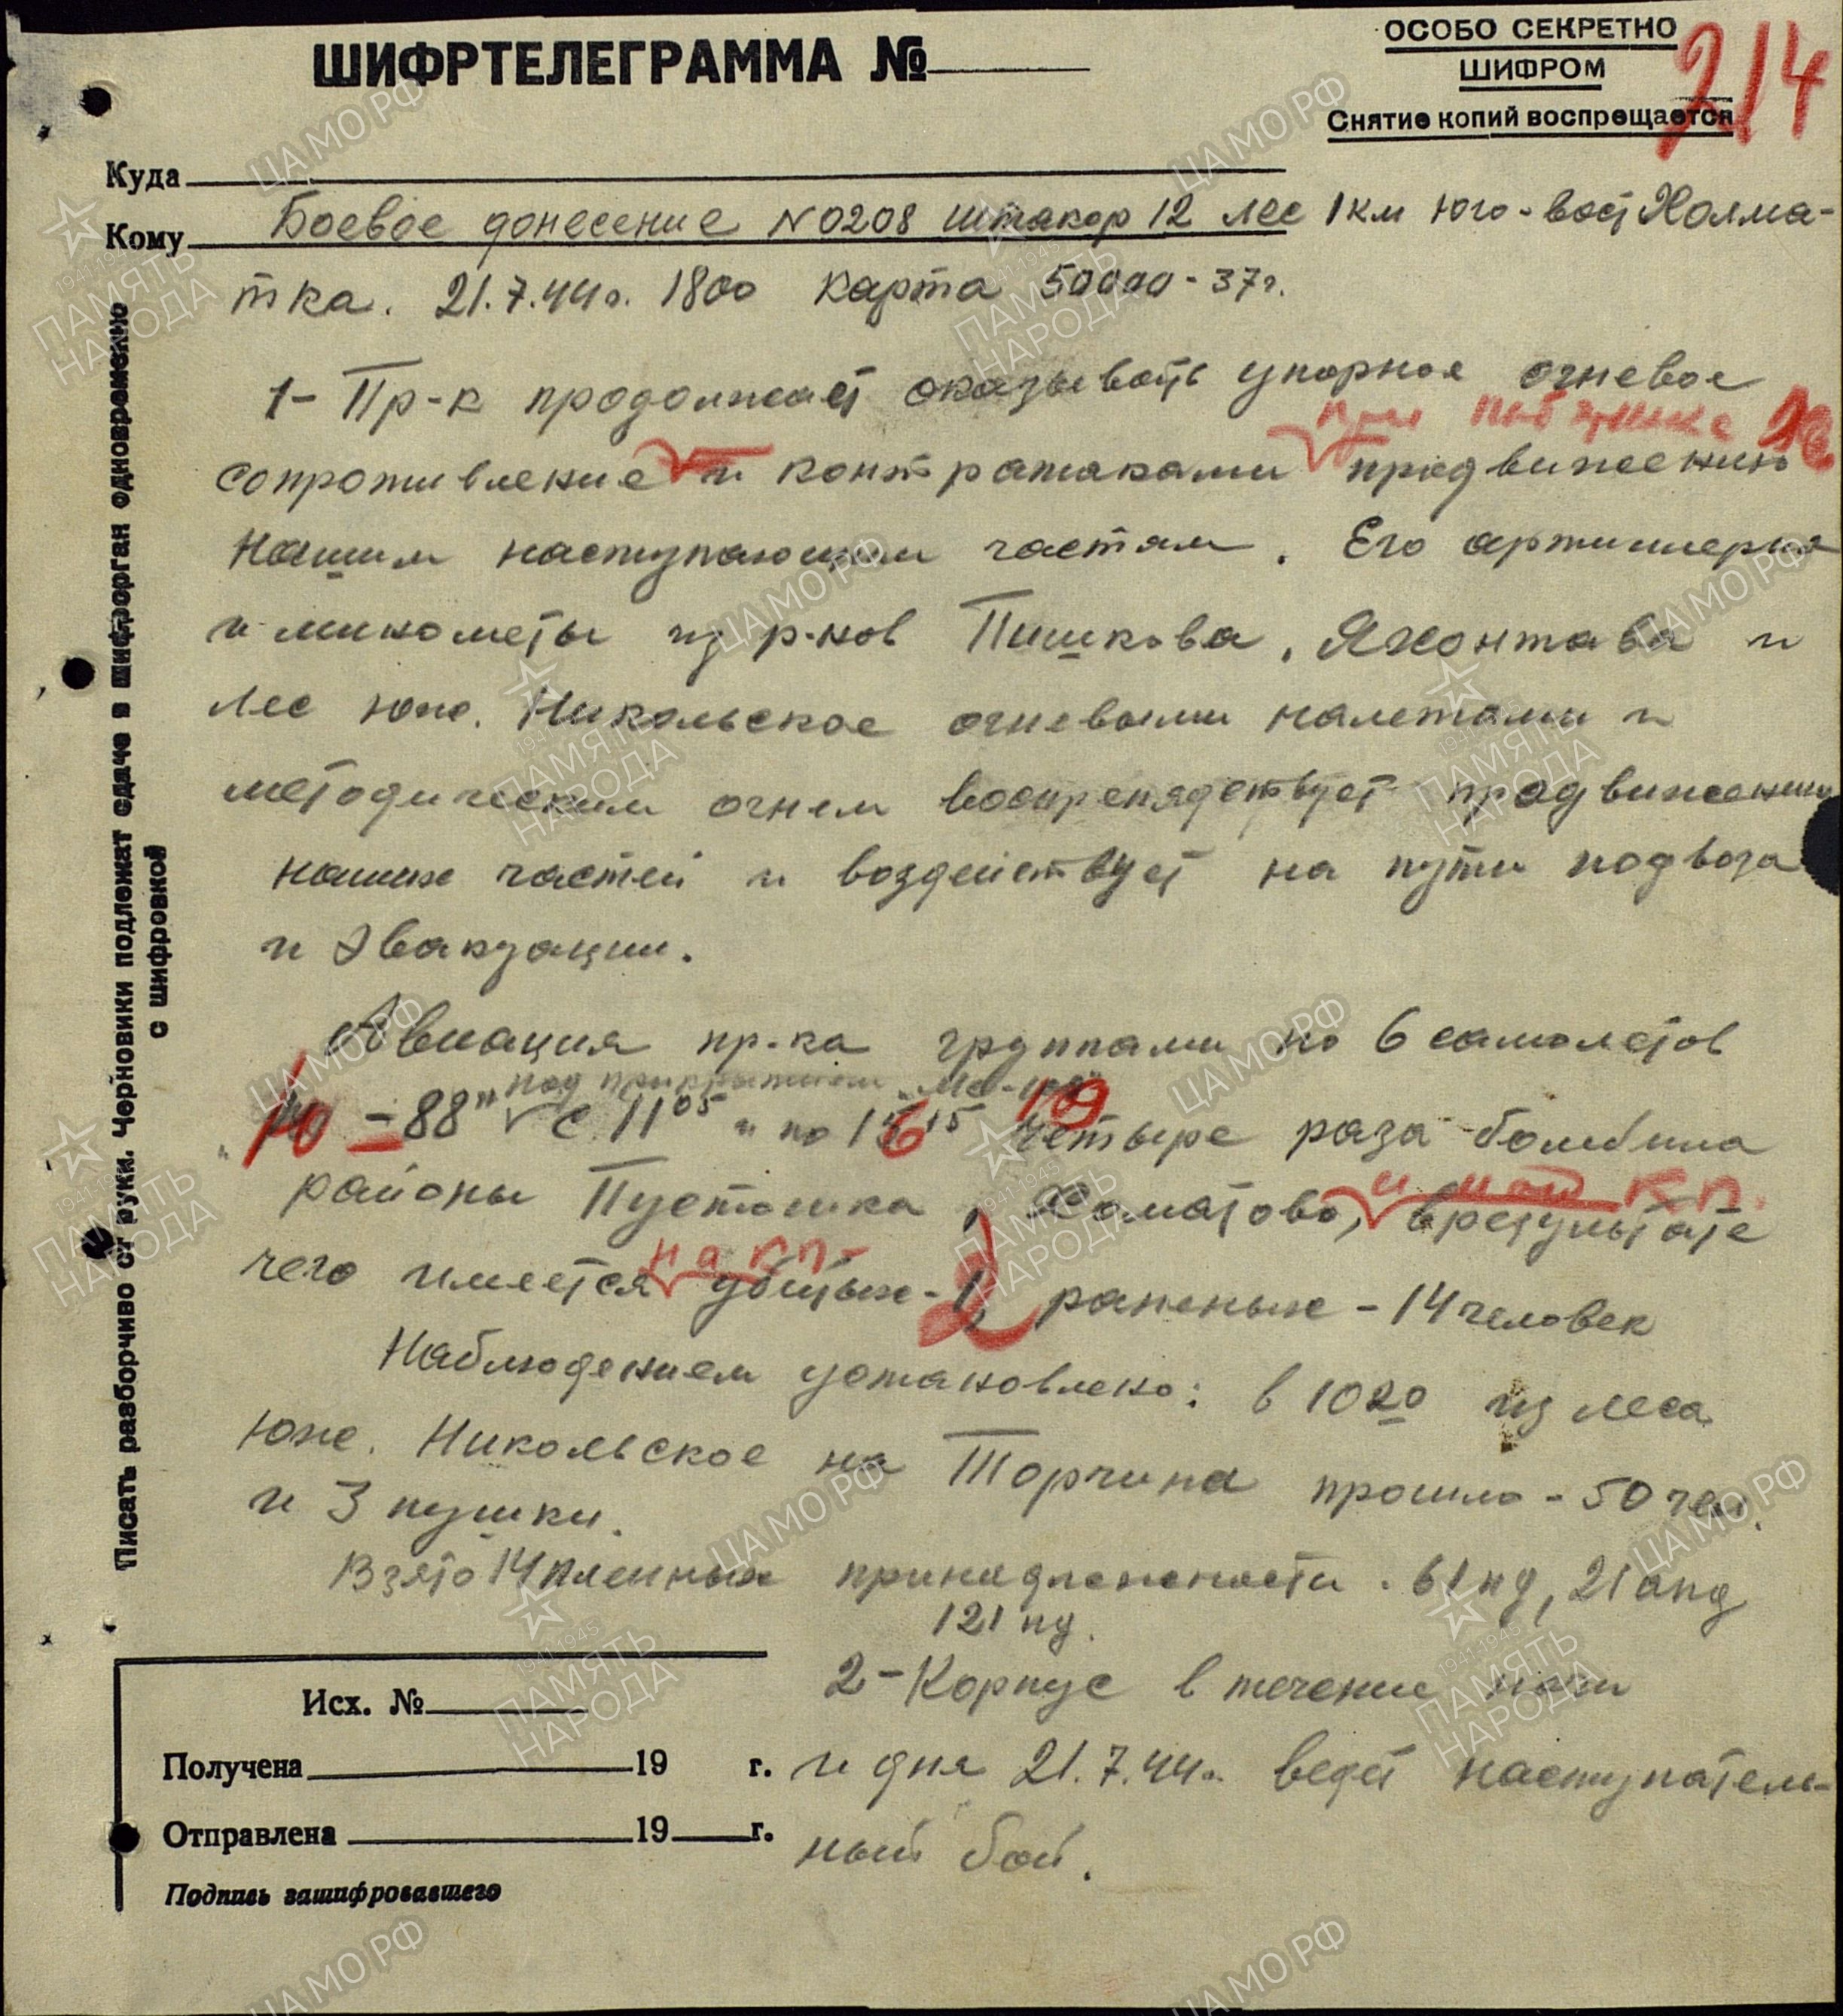 ШИФРТЕЛЕГРАММА №
ОСОБО СЕКРЕТНО
ШИФРОМ
Снятие копий воспрещается
214
Куда
Кому Боевое донесение N0208 штакор 12 лес 1 км юго-вост Холма-
тка. 21.7.44г. 1800 карта 50000-37г.
1- Пр-к продолжает оказывать упорное огневое
при
сопротивление и контратаками продвижению
нашим наступающим частям. Его артиллерия
и минометы из р-нов Пишкова, Яхонтова и
лес южн. Никольское огневыми налетами и
методическим огнем воспрепядствует продвижению
наших частей и воздействует на пути подвоза
и эвакуации.
Авиация пр-ка группами по 6 самолетов
под прикрытием
"Ю-88" с 11 05 по 16 15 четыре раза бомбила
и наш КП.
районы Пустошка, Соматово, в результате
на КП
чего имеется убитых - 2, раненых - 14 человек
Наблюдением установлено: в 1020 из леса
южн. Никольское на Торчина прошло - 50 чел.
и 3 пушки.
Взято 14 пленных принадлежности. 61 пд, 21 апд
121 пд.
2-Корпус в течение ночи
и дня 21.7.44г. ведет наступатель-
ный бой.
Исх. №
Получена 19 г.
Отправлена 19 г.
Подпись зашифровавшего
Писать разборчиво от руки. Черновики подлежат сдаче в шифрорган одновременно
с шифровкой
ЦАМО РФ
ПАМЯТЬ
НАРОДА
1941-1945